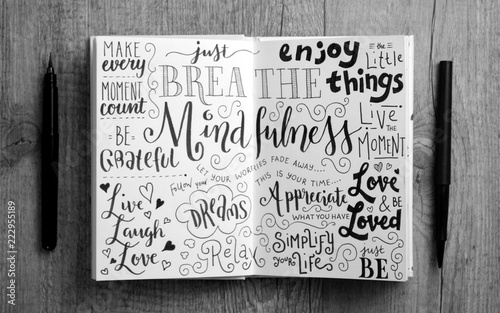 MAKE
every
MOMENT
count
just
BREATHE
enjoy
the
Little
things
BE
Grateful
Mindfulness
LIVE
THE
MOMENT
LET YOUR WORRIES FADE AWAY....
THIS IS YOUR TIME...
Follow your
DREAMS
Live
Laugh
Love
Relax
Appreciate
WHAT YOU HAVE
Simplify
YOUR LIFE
Love
& BE
Loved
just
BE
Adobe Stock | #222955189